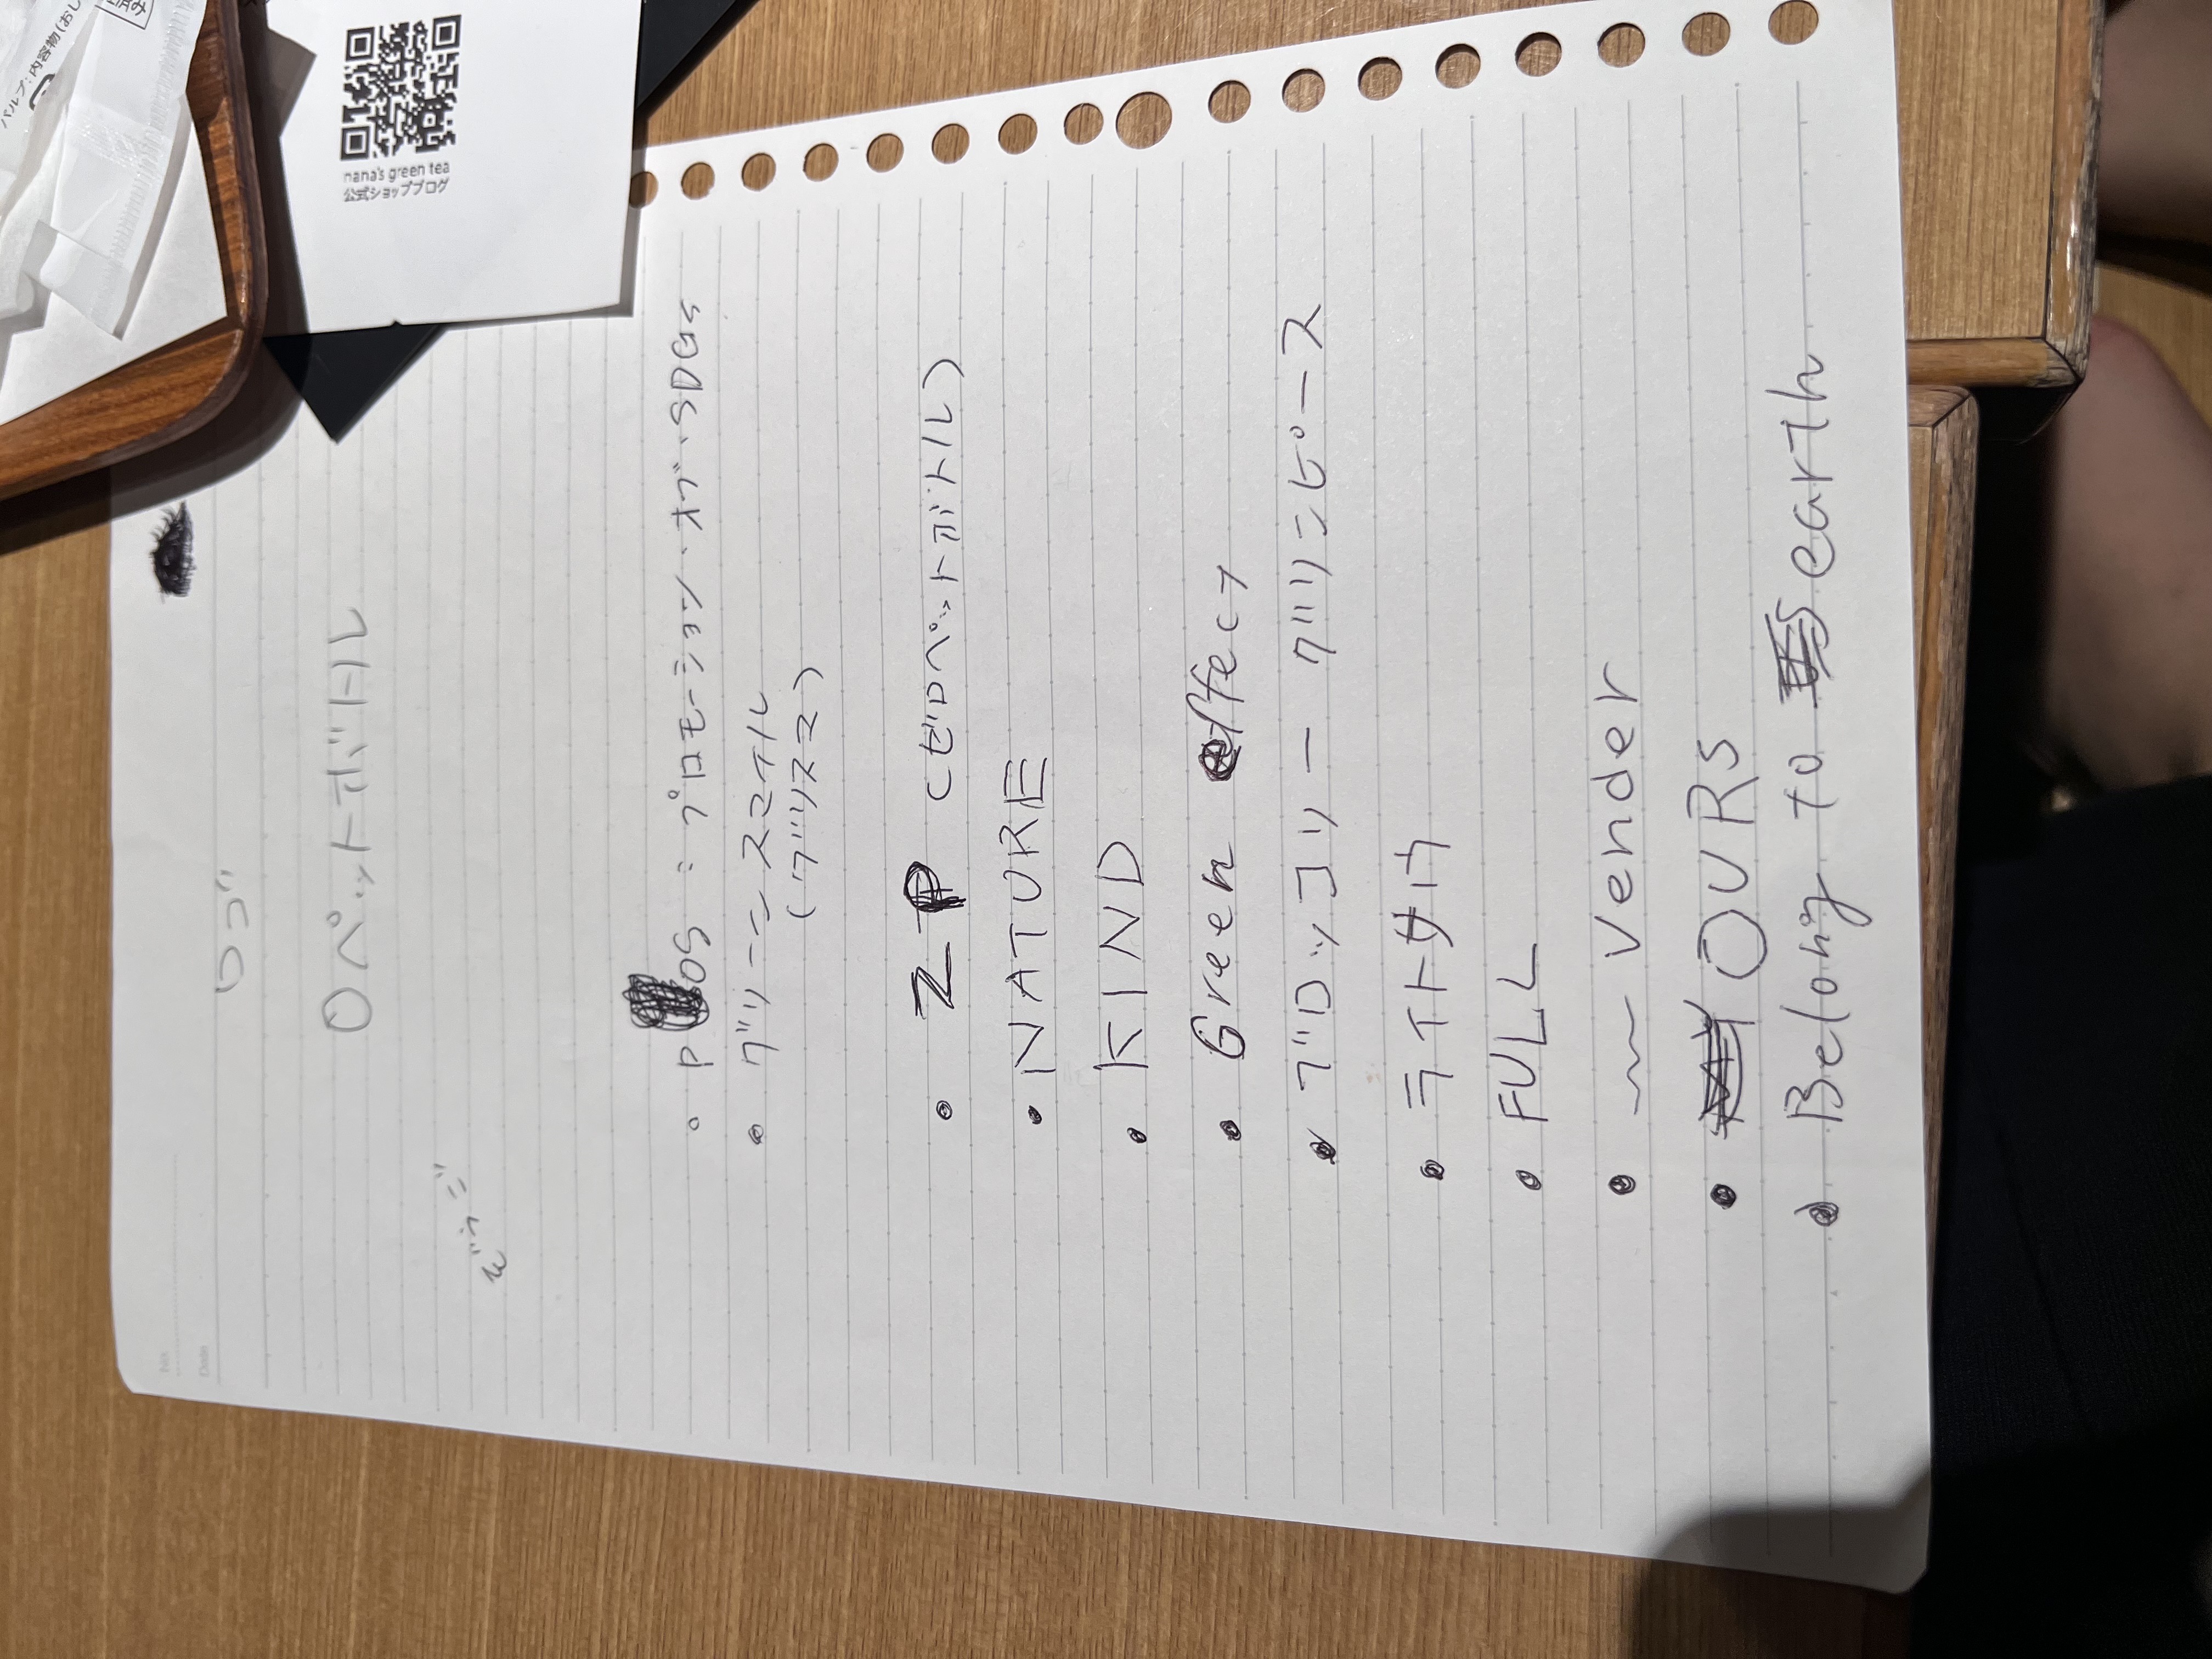 No.
Date
ロゴ
0ペットボトル
OS : プロモーション・オブ・SDGs
グリーンスマイル
(グリスマ)
ZP (ゼロペットボトル)
NATURE
KIND
Green effect
ブロッコリー グリンピース
ライトサイド
FULL
〰 Vender
MY OURS
Belong to US earth
nana's green tea
公式ショップブログ